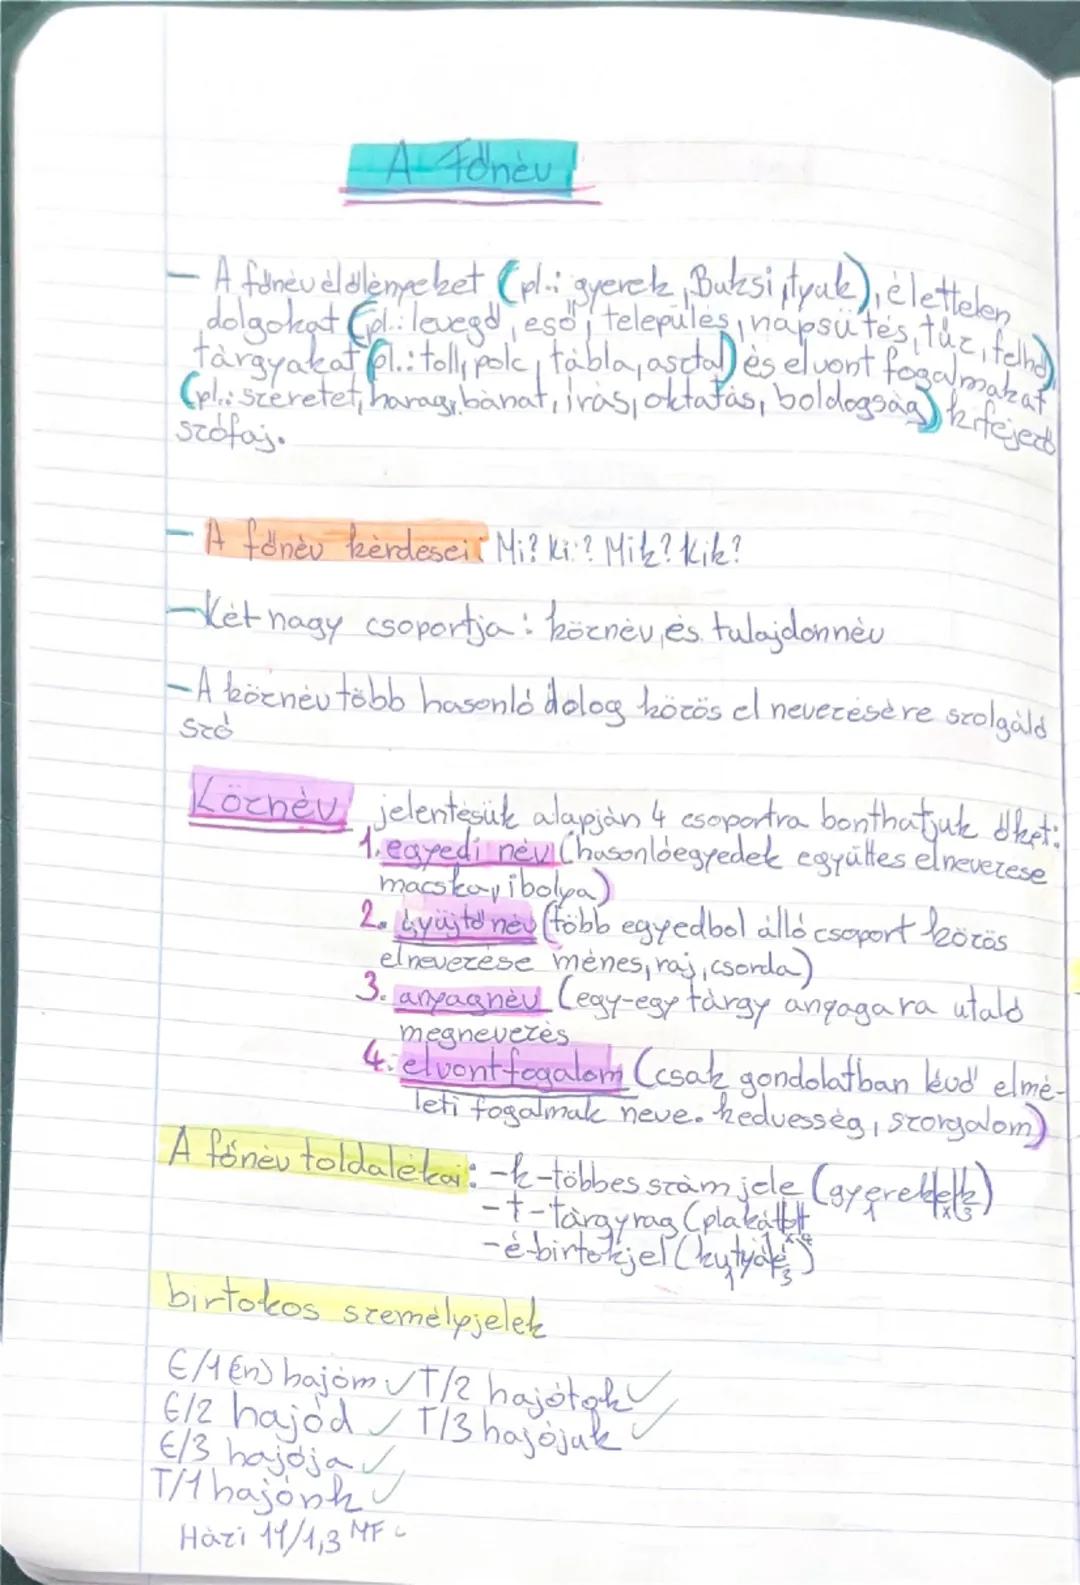 A Főnév
- A főnév élőlényeket (pl.: gyerek, Buksi, tyúk), élettelen
dolgokat (pl.: levegő, eső, település, napsütés, tűz, felhő)
tárgyakat (pl.: toll, polc, tábla, asztal) és elvont fogalmakat
(pl.: szeretet, harag, bánat, írás, oktatás, boldogság) kifejező
szófaj.
- A főnév kérdései: Mi? Ki? Mik? Kik?
- Két nagy csoportja: köznév, és tulajdonnév
- A köznév több hasonló dolog közös elnevezésére szolgáló
szó
Köznév jelentésük alapján 4 csoportra bonthatjuk őket:
1. egyedi név (hasonlóegyedek együttes elnevezese
macska, ibolya)
2. Gyűjtőnév (több egyedbol álló csoport közös
elnevezése ménes, raj, csorda)
3. anyagnév (egy-egy tárgy anyagara utaló
megnevezés
4. elvont fogalom (csak gondolatban lévő elmé-
leti fogalmak neve. kedvesség, szorgalom)
A főnév toldalékai: -k-többes szám jele (gyerek|e|k)
-t-tárgyrag (plakátot
-é-birtokjel (kutyáé)
birtokos személyjelek
E/1 (én) hajóm ✓ T/2 hajótok ✓
E/2 hajód ✓ T/3 hajójuk ✓
E/3 hajója ✓
T/1 hajónk ✓
Házi 11/1,3 MF